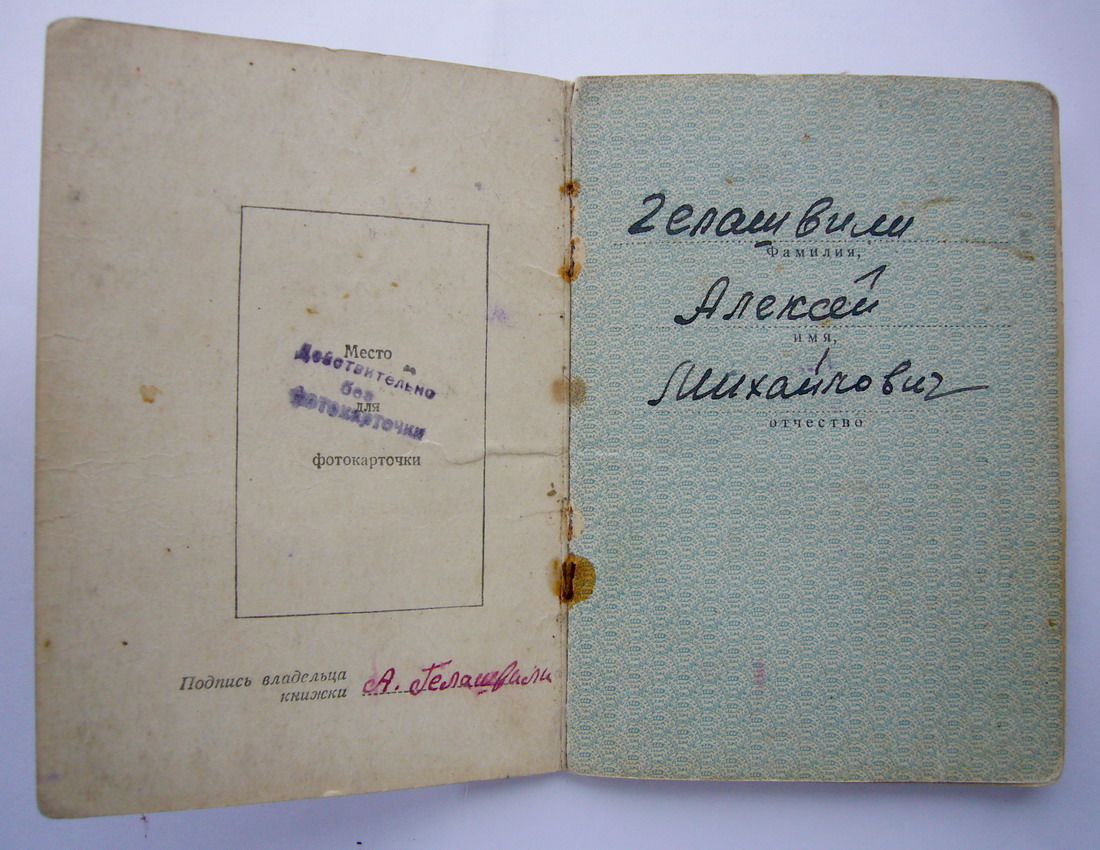 Место
для
фотокарточки
Действительно
без
фотокарточки
Подпись владельца
книжки
А. Гелашвили
Гелашвили
Фамилия,
Алексей
имя,
Михайлович
отчество